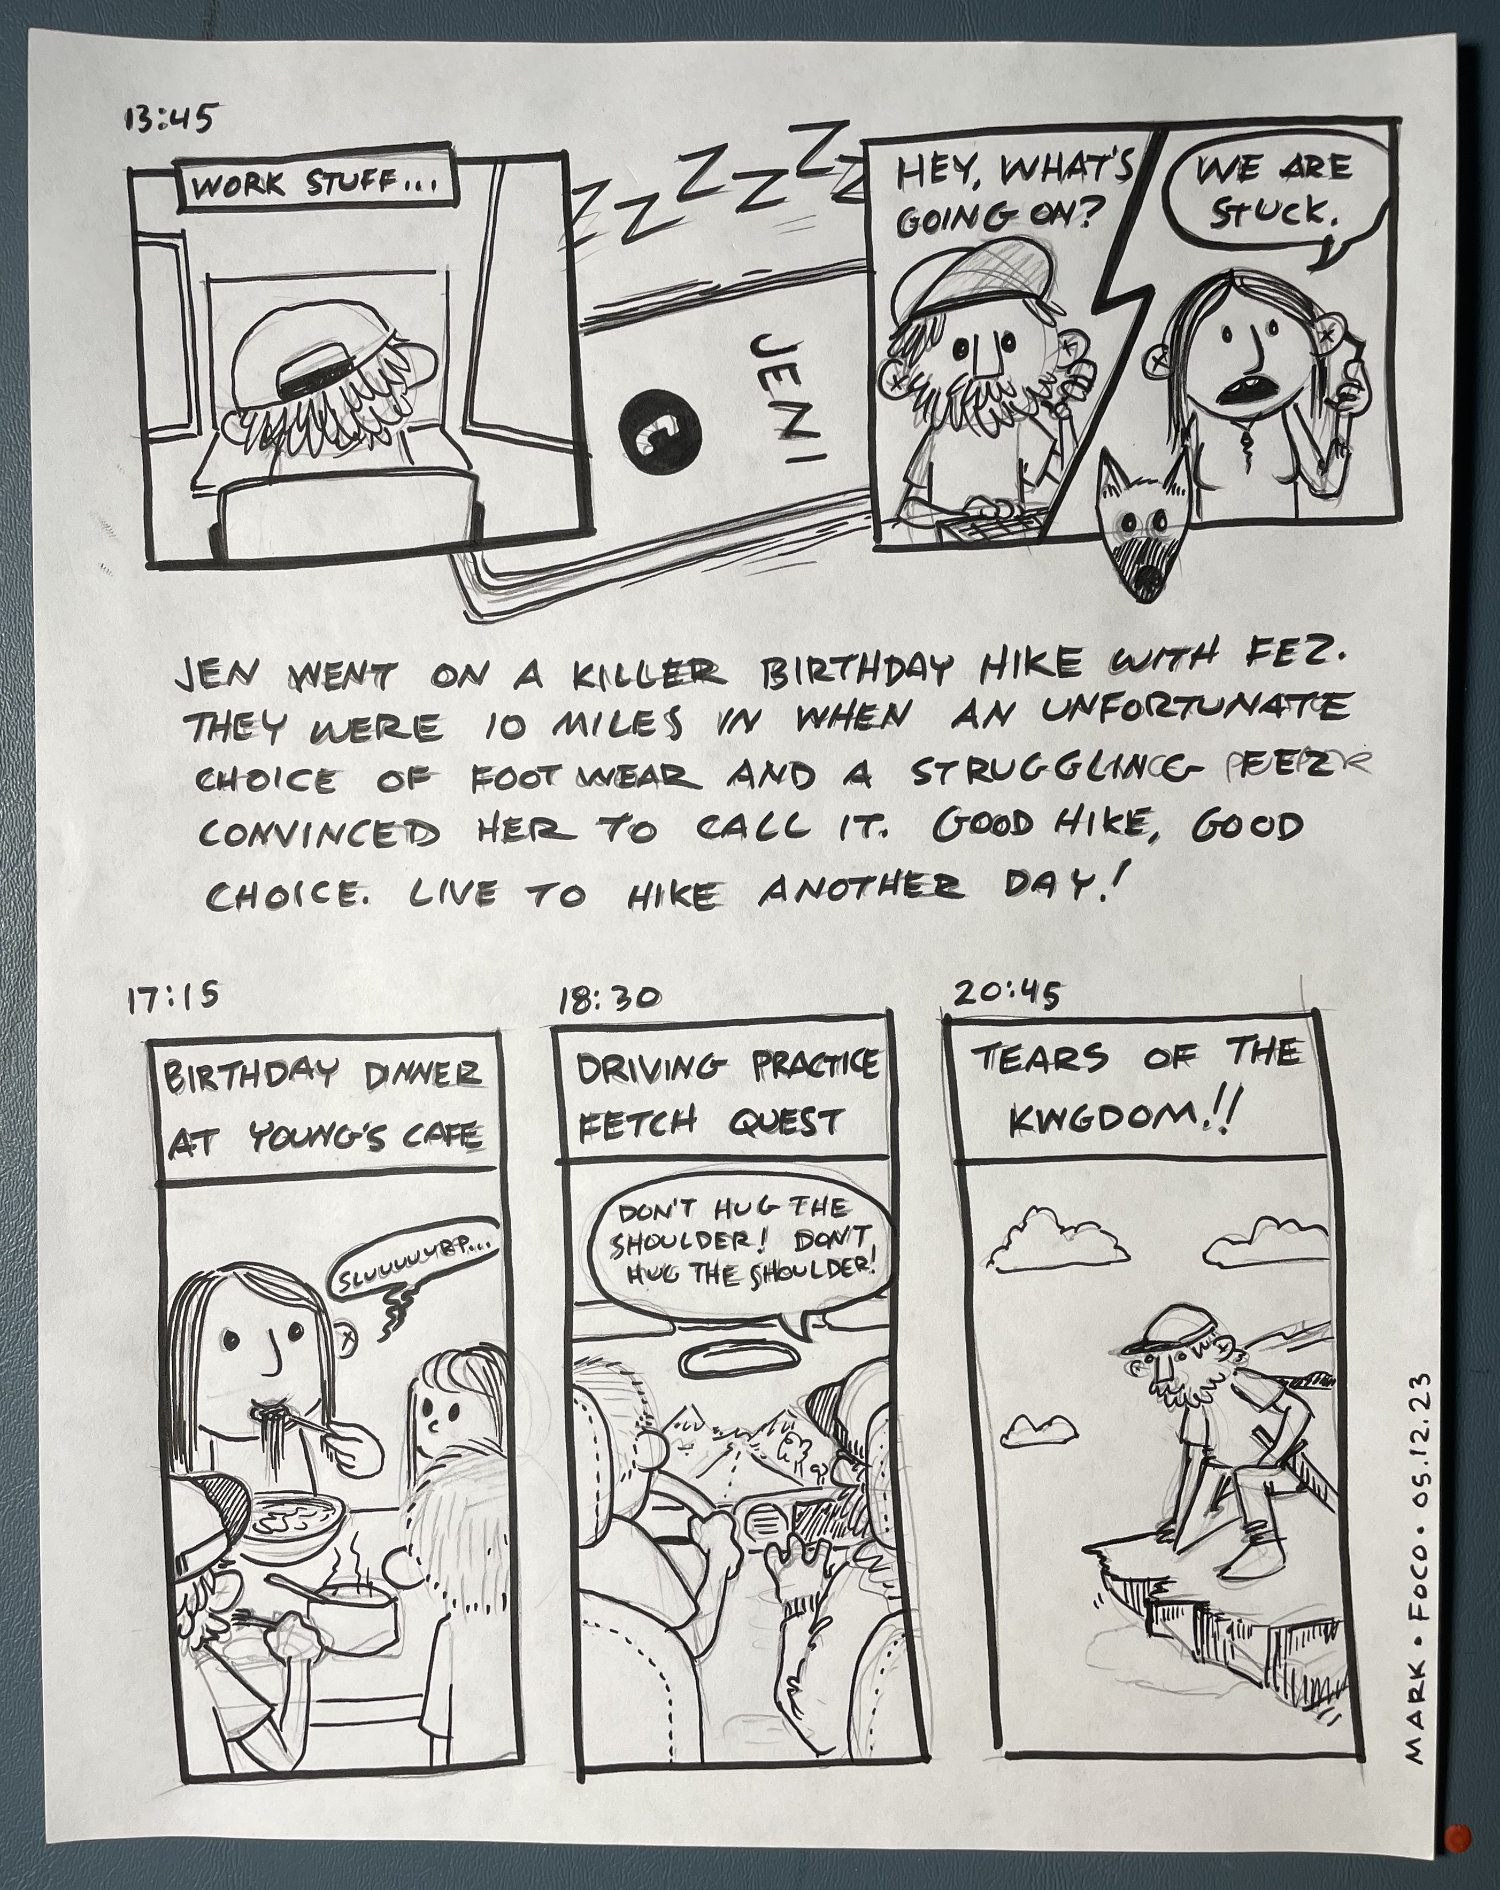 13:45
WORK STUFF...
Z Z Z Z Z Z
JENI
HEY, WHAT'S
GOING ON?
WE ARE
STUCK.
JEN WENT ON A KILLER BIRTHDAY HIKE WITH FEZ.
THEY WERE 10 MILES IN WHEN AN UNFORTUNATE
CHOICE OF FOOTWEAR AND A STRUGGLING FEZ
CONVINCED HER TO CALL IT. GOOD HIKE, GOOD
CHOICE. LIVE TO HIKE ANOTHER DAY!
17:15
BIRTHDAY DINNER
AT YOUNG'S CAFE
SLUUUUURP...
18:30
DRIVING PRACTICE
FETCH QUEST
DON'T HUG THE
SHOULDER! DON'T
HUG THE SHOULDER!
20:45
TEARS OF THE
KINGDOM!!
MARK • FOCO • 05.12.23